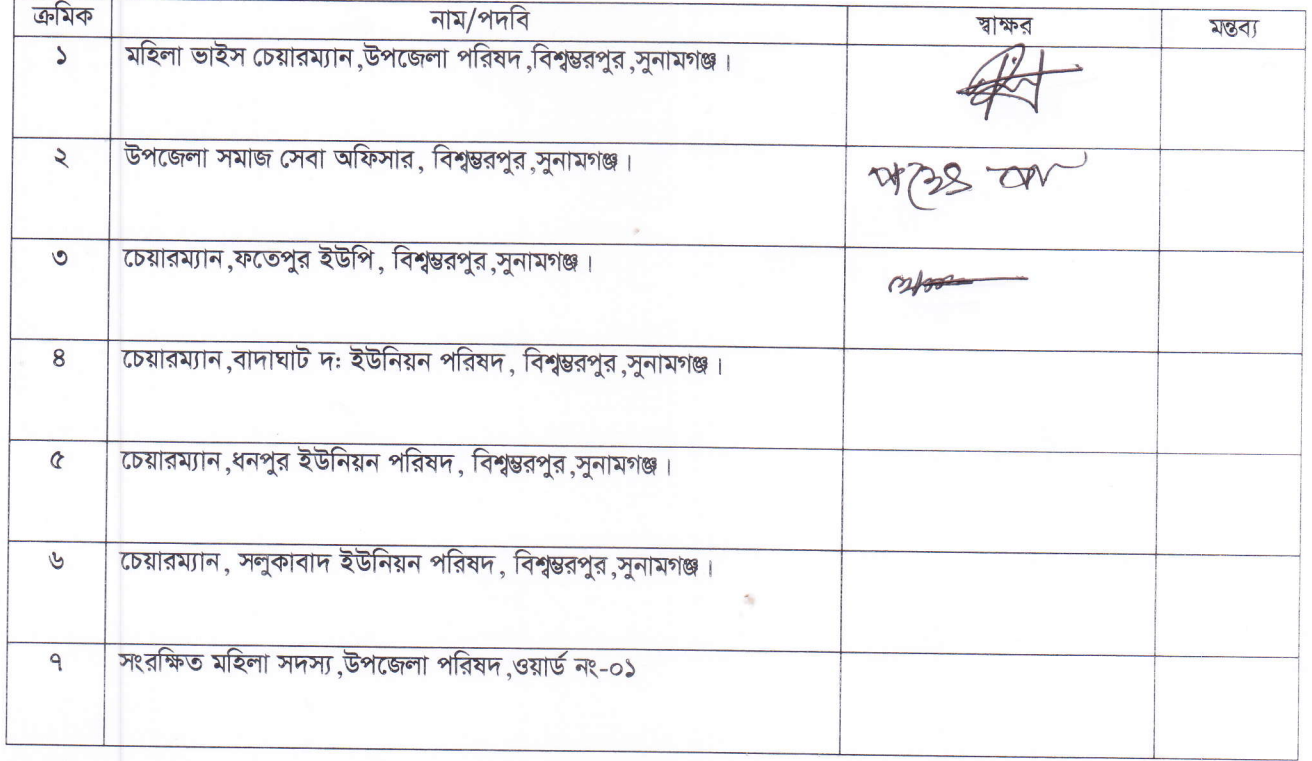 ক্রমিক নাম/পদবি স্বাক্ষর মন্তব্য
১ মহিলা ভাইস চেয়ারম্যান,উপজেলা পরিষদ,বিশ্বম্ভরপুর,সুনামগঞ্জ।
২ উপজেলা সমাজ সেবা অফিসার, বিশ্বম্ভরপুর,সুনামগঞ্জ।
৩ চেয়ারম্যান,ফতেপুর ইউপি, বিশ্বম্ভরপুর,সুনামগঞ্জ।
৪ চেয়ারম্যান,বাদাঘাট দ: ইউনিয়ন পরিষদ, বিশ্বম্ভরপুর,সুনামগঞ্জ।
৫ চেয়ারম্যান,ধনপুর ইউনিয়ন পরিষদ, বিশ্বম্ভরপুর,সুনামগঞ্জ।
৬ চেয়ারম্যান, সলুকাবাদ ইউনিয়ন পরিষদ, বিশ্বম্ভরপুর,সুনামগঞ্জ।
৭ সংরক্ষিত মহিলা সদস্য,উপজেলা পরিষদ,ওয়ার্ড নং-০১